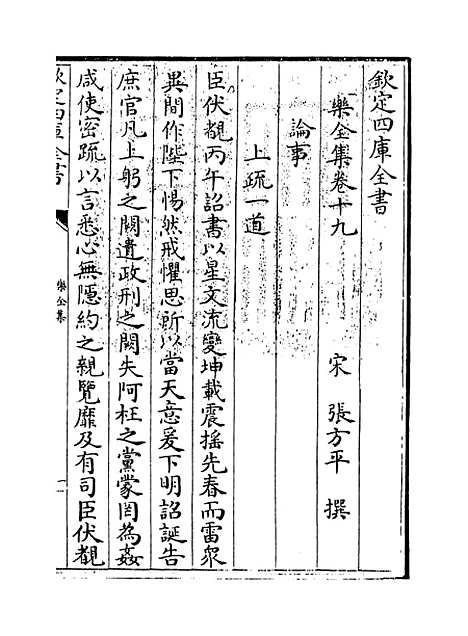 欽定四庫全書
樂全集卷十九
宋　張方平　撰
論事
上疏一道
臣伏覩丙午詔書以星文流變坤載震搖先春而雷衆
異間作陛下惕然戒懼思所以當天意爰下明詔誕告
庶官凡上躬之闕遺政刑之闕失阿枉之黨蒙罔為姦
咸使密疏以言悉心無隱約之親覽靡及有司臣伏覩
欽定四庫全書
樂全集
一